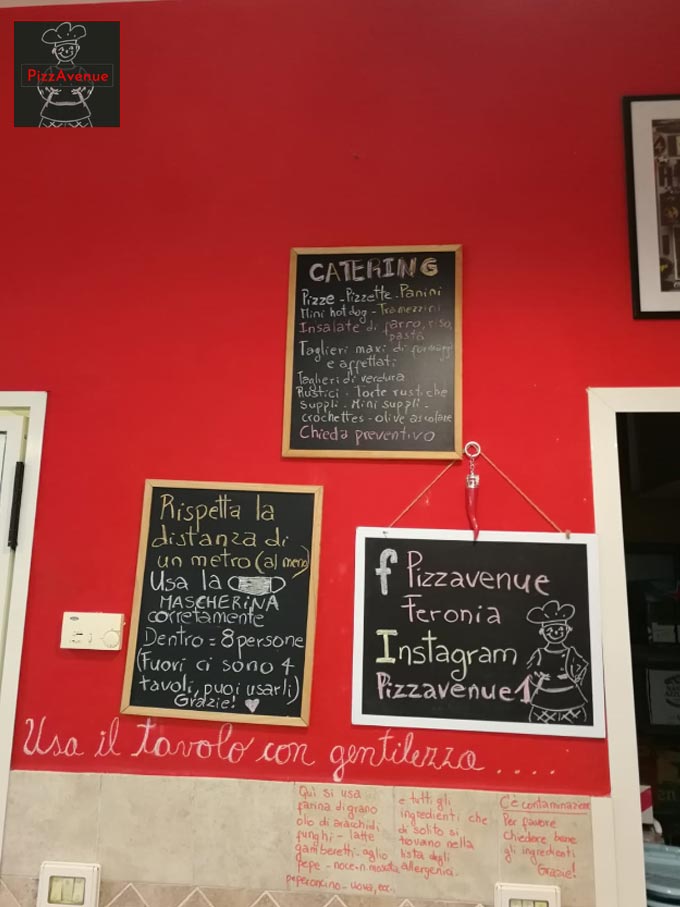 PizzAvenue
CATERING
Pizze - Pizzette - Panini
Mini hot dog - Tramezzini
Insalate di farro, riso,
pasta
Taglieri maxi di formaggi
e affettati
Taglieri di verdura
Rustici - Torte rustiche
Supplì - Mini supplì -
crochettes - olive ascolane
Chieda preventivo
Rispetta la
distanza di
un metro (al meno)
Usa la
MASCHERINA
corretamente
Dentro = 8 persone
(Fuori ci sono 4
tavoli, puoi usarli)
Grazie!
f Pizzavenue
Feronia
Instagram
Pizzavenue1
Usa il tavolo con gentilezza ....
Qui si usa
farina di grano
olio di arachidi
funghi - latte
gamberetti - aglio
pepe - noce m.
peperoncino - uova, ecc..
e tutti gli
ingredienti che
di solito si
trovano nella
lista degli
allergenici.
C'è contaminazione
Per favore
chiedere bene
gli ingredienti
Grazie!